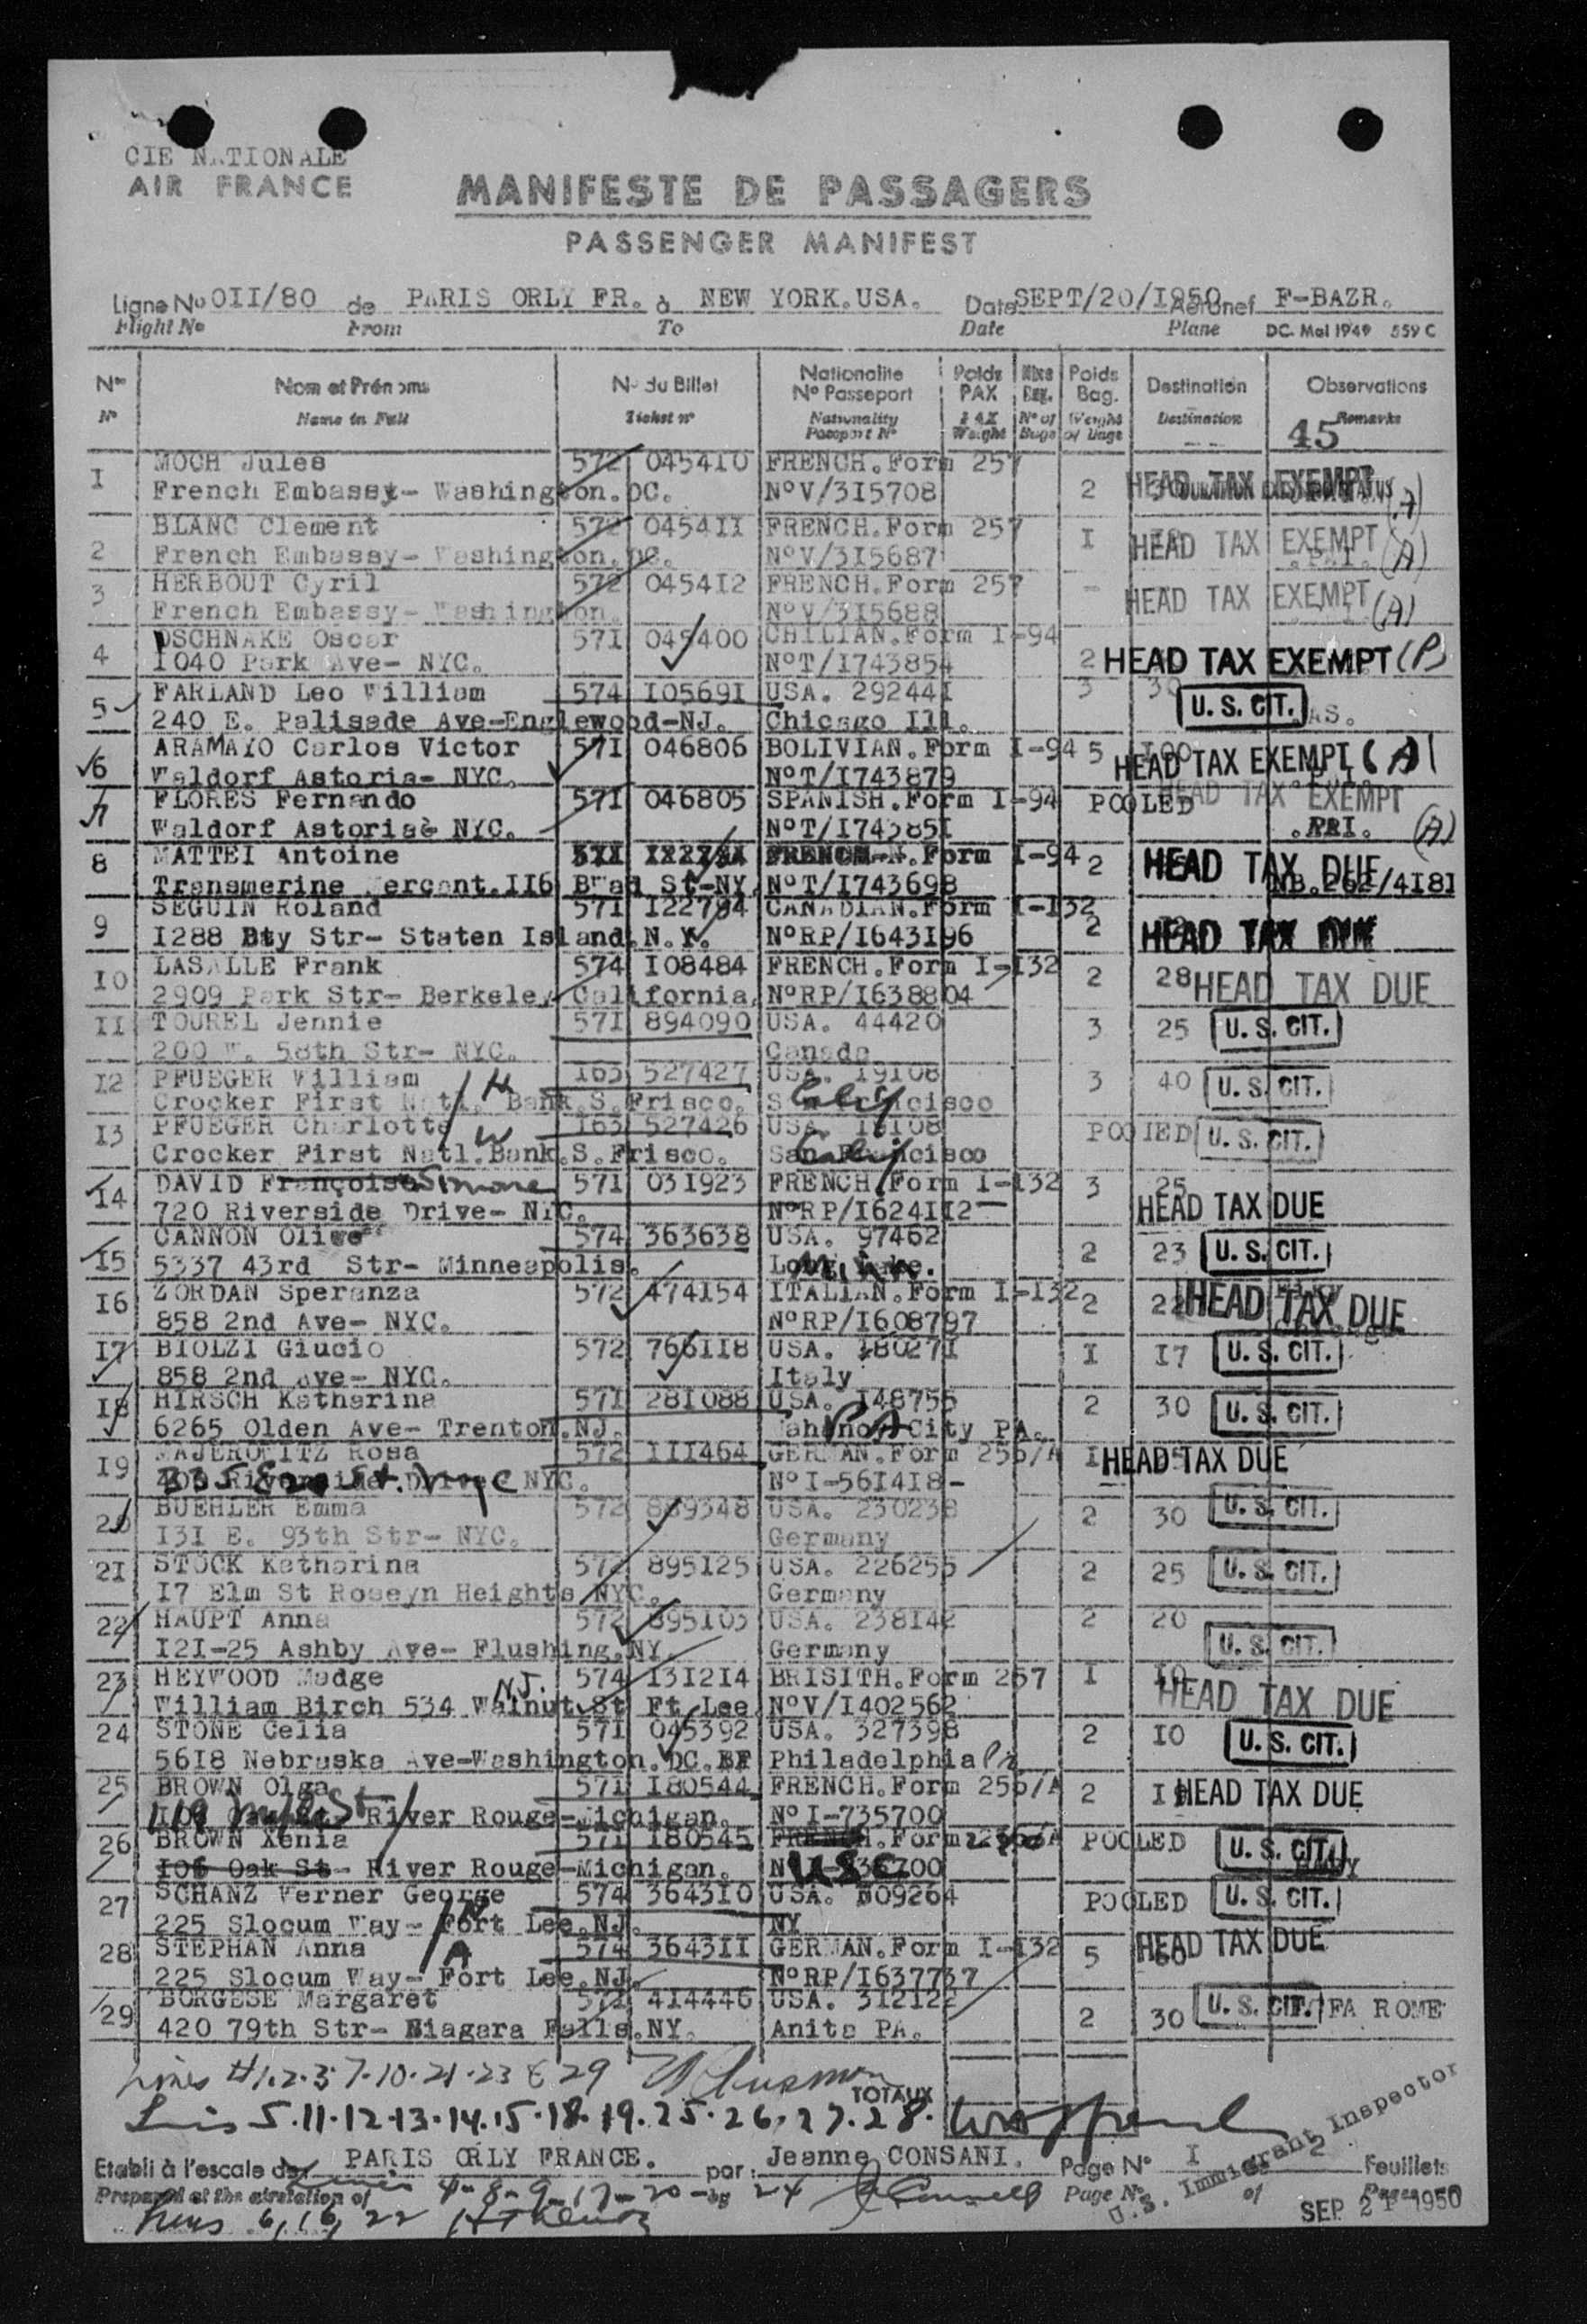 CIE NATIONALE
AIR FRANCE
MANIFESTE DE PASSAGERS
PASSENGER MANIFEST
Ligne No OII/80 de PARIS ORLY FR. à NEW YORK.USA. Date SEPT/20/I950 Aéronef F-BAZR.
Flight No From To Date Plane DC. Mai 1949 559 C
Nos Nom et Prénoms No du Billet Nationalité No Passeport Poids PAX Nbre Bag. Poids Bag. Destination Observations
No Name in Full Ticket no Nationality Passport No PAX Weight No of Bags Weight of Bags Destination Remarks
45
I MOCH Jules 572 0454I0 FRENCH.Form 257
French Embassy- Washington.DC. NoV/3I5708 2 HEAD TAX EXEMPT (A)
2 BLANC Clement 572 0454II FRENCH.Form 257
French Embassy- Washington.DC. NoV/3I5687 I HEAD TAX EXEMPT (A)
3 HERBOUT Cyril 572 0454I2 FRENCH.Form 257
French Embassy- Washington. NoV/3I5688 - HEAD TAX EXEMPT (A)
4 OSCHNAKE Oscar 571 045400 CHILIAN.Form I-94
I040 Park Ave- NYC. NoT/I743854 2 HEAD TAX EXEMPT (P)
5 FARLAND Leo William 574 I0569I USA. 29244I 3 30
240 E. Palisade Ave-Englewood-NJ. Chicago Ill. U. S. CIT. AS.
6 ARAMAYO Carlos Victor 57I 046806 BOLIVIAN.Form I-94 5
Waldorf Astoria- NYC. NoT/I743879 HEAD TAX EXEMPT (A)
7 FLORES Fernando 57I 046805 SPANISH.Form I-94 POOLED HEAD TAX EXEMPT
Waldorf Astoria- NYC. NoT/I74385I .PRI. (A)
8 MATTEI Antoine FRENCH.Form I-94 2 HEAD TAX DUE
Transmerine Mercant.II6 Broad St-NY. NoT/I743698 NB.262/4I8I
9 SEGUIN Roland 57I I22794 CANADIAN.Form I-I32
I288 Bay Str- Staten Island.N.Y. NoRP/I643I96 2 HEAD TAX DUE
I0 LASALLE Frank 574 I08484 FRENCH.Form I-I32
2909 Park Str- Berkeley California. NoRP/I638804 2 28 HEAD TAX DUE
II TOUREL Jennie 57I 894090 USA. 44420 3 25 U. S. CIT.
200 W. 58th Str- NYC. Canada
I2 PFUEGER William H I63 527427 USA. I9I08 3 40 U. S. CIT.
Crocker First Natl. Bank.S.Frisco. San Francisco Calif
I3 PFUEGER Charlotte W I63 527426 USA. I8I08 POOLED U. S. CIT.
Crocker First Natl.Bank.S.Frisco. San Francisco Calif
I4 DAVID Françoise Simone 57I 03I923 FRENCH.Form I-I32 3 25
720 Riverside Drive- NYC. NoRP/I624II2 HEAD TAX DUE
I5 CANNON Olive 574 363638 USA. 97462 2 23 U. S. CIT.
5337 43rd Str- Minneapolis. Long Lake. Minn.
I6 ZORDAN Speranza 572 474I54 ITALIAN.Form I-I32 2 22 HEAD TAX DUE
858 2nd Ave- NYC. NoRP/I608797
I7 BIOLZI Giucio 572 766II8 USA. I8027I I I7 U. S. CIT.
858 2nd Ave- NYC. Italy
I8 HIRSCH Katharina 57I 28I088 USA. I48755 2 30 U. S. CIT.
6265 Olden Ave- Trenton.NJ. Mahanoy City PA. PA
I9 MAJEROWITZ Rosa 572 III464 GERMAN.Form 256/A I HEAD TAX DUE
Riverside Drive NYC. No I-56I4I8-
20 BUEHLER Emma 572 889348 USA. 230238 2 30 U. S. CIT.
I3I E. 93th Str- NYC. Germany
2I STOCK Katharina 572 895I25 USA. 226255 2 25 U. S. CIT.
I7 Elm St Roseyn Heights NYC. Germany
22 HAUPT Anna 572 895I03 USA. 238I42 2 20
I2I-25 Ashby Ave- Flushing.NY. Germany U. S. CIT.
23 HEYWOOD Madge 574 I3I2I4 BRISITH.Form 257 I I0
William Birch 534 Walnut St Ft Lee NJ. NoV/I402562 HEAD TAX DUE
24 STONE Celia 57I 045392 USA. 327398 2 I0 U. S. CIT.
56I8 Nebraska Ave-Washington.DC. Philadelphia Pa
25 BROWN Olga 57I I80544 FRENCH.Form 256/A 2 HEAD TAX DUE
River Rouge-Michigan. No I-735700
26 BROWN Xenia 57I I80545 FRENCH.Form 256/A POOLED U. S. CIT.
I06 Oak St- River Rouge-Michigan. USC
27 SCHANZ Werner George 574 3643I0 USA. 509264 POOLED U. S. CIT.
225 Slocum Way- Fort Lee.NJ. NY
28 STEPHAN Anna A 574 3643II GERMAN.Form I-I32 5 60 HEAD TAX DUE
225 Slocum Way- Fort Lee.NJ. NoRP/I637737
29 BORGESE Margaret 571 4I4446 USA. 3I2I22 2 30 U. S. CIT. FA ROME
420 79th Str- Niagara Falls.NY. Anita PA.
Lines #1.2.3.7.10.21.23 & 29
TOTAUX
Lines 5.11.12.13.14.15.18.19.25.26.27.28.
Etabli à l'escale de PARIS ORLY FRANCE. par: Jeanne CONSANI. Page No I de 2 Feuillets
Prepared at the airstation of by Page No of Pages
Lines 4-8-9-17-20-24
Lines 6, 16, 22
U.S. Immigrant Inspector
SEP 21 1950